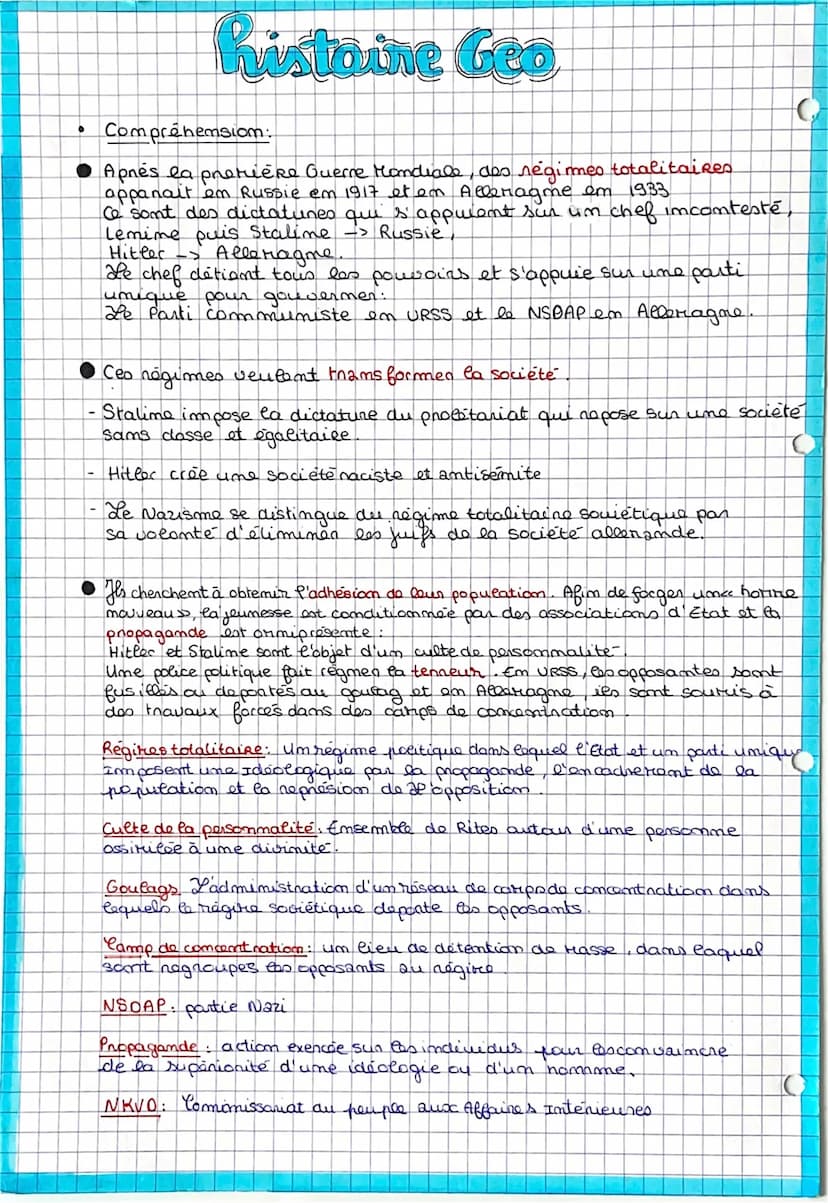 histoire Geo
• Compréhension:
● Après la première Guerre Mondiale, des régimes totalitaires
apparait en Russie en 1917 et en Allemagne en 1933
Ce sont des dictatures qui s'appuient sur un chef incontesté,
Lenine puis Staline -> Russie,
Hitler -> Allemagne.
Le chef détient tous les pouvoirs et s'appuie sur une parti
unique pour gouverner:
Le Parti Communiste en URSS et le NSDAP en Allemagne.
● Ces régimes veulent transformer la société.
- Staline impose la dictature du prolétariat qui repose sur une société
sans classe et égalitaire.
- Hitler crée une société raciste et antisémite
- Le Nazisme se distingue du régime totalitaire soviétique par
sa volonté d'éliminer les juifs de la société allemande.
● Ils cherchent à obtenir l'adhésion de leur population. Afin de forger un « homme
nouveau », la jeunesse est conditionnée par des associations d'État et la
propagande est omniprésente :
Hitler et Staline sont l'objet d'un culte de personnalité.
Une police politique fait régner la terreur. En URSS, les opposantes sont
fusillés ou deportés au goulag et en Allemagne, ils sont soumis à
des travaux forcés dans des camps de concentration.
Régimes totalitaire: Un régime politique dans lequel l'État et un parti unique
imposent une idéologique par la propagande, l'encadrement de la
population et la represion de l'opposition.
Culte de la personnalité: Ensemble de Rites autour d'une personne
assimilée à une divinité.
Goulags L'administration d'un réseau de camps de concentration dans
lequels le régime soviétique deporte les opposants.
Camp de concentration: un lieu de détention de masse, dans laquel
sont regroupés les opposants au régime
NSDAP: partie Nazi
Propagande: action exercée sur les individus pour les convaincre
de la supériorité d'une idéologie ou d'un homme.
NKVD: Commissariat du peuple aux Affaires Intérieures